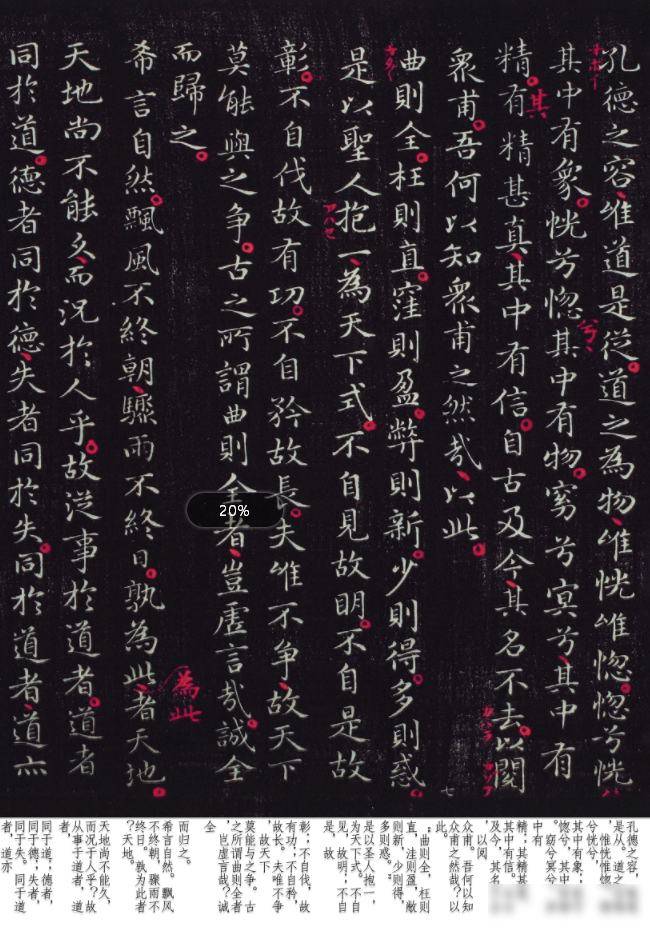 孔德之容、唯道是從。道之為物、唯恍唯惚。惚兮恍
其中有象。恍兮惚兮、其中有物。窈兮冥兮、其中有
精。其有精甚真、其中有信。自古及今、其名不去。以閲
衆甫。吾何以知衆甫之然哉、以此。
曲則全。枉則直。窪則盈。弊則新。少則得。多則惑。
是以聖人抱一、為天下式。不自見故明。不自是故
彰。不自伐故有功。不自矜故長。夫唯不争、故天下
莫能與之争。古之所謂曲則全者、豈虚言哉。誠全
而歸之。
希言自然。飄風不終朝、驟雨不終日。孰為此者天地。
為此
天地尚不能久、而況於人乎。故從事於道者。道者
同於道。德者同於德、失者同於失。同於道者、道亦
20%
孔德之容，
是从。道之
，惟恍惟惚
兮恍兮，
其中有象；
惚兮，其中
。窈兮冥兮
中有
精；其精甚
其中有信。
及今，其名
，以阅
众甫。吾何以知
众甫之然哉？以
此。
“曲则全，枉则
直，洼则盈，敝
则新，少则得，
多则惑。”
是以圣人抱一，
为天下式。不自
见，故明；不自
是，故
彰；不自伐，故
有功；不自矜，
故长。夫唯不争
，故天下
莫能与之争。古
之所谓曲则全者
，岂虚言哉？诚
全
而归之。
希言自然。飘风
不终朝，骤雨不
终日。孰为此者
？天地。
天地尚不能久，
而况于人乎？故
从事于道者，道
者，
同于道；德者，
同于德；失者，
同于失。同于道
者，道亦